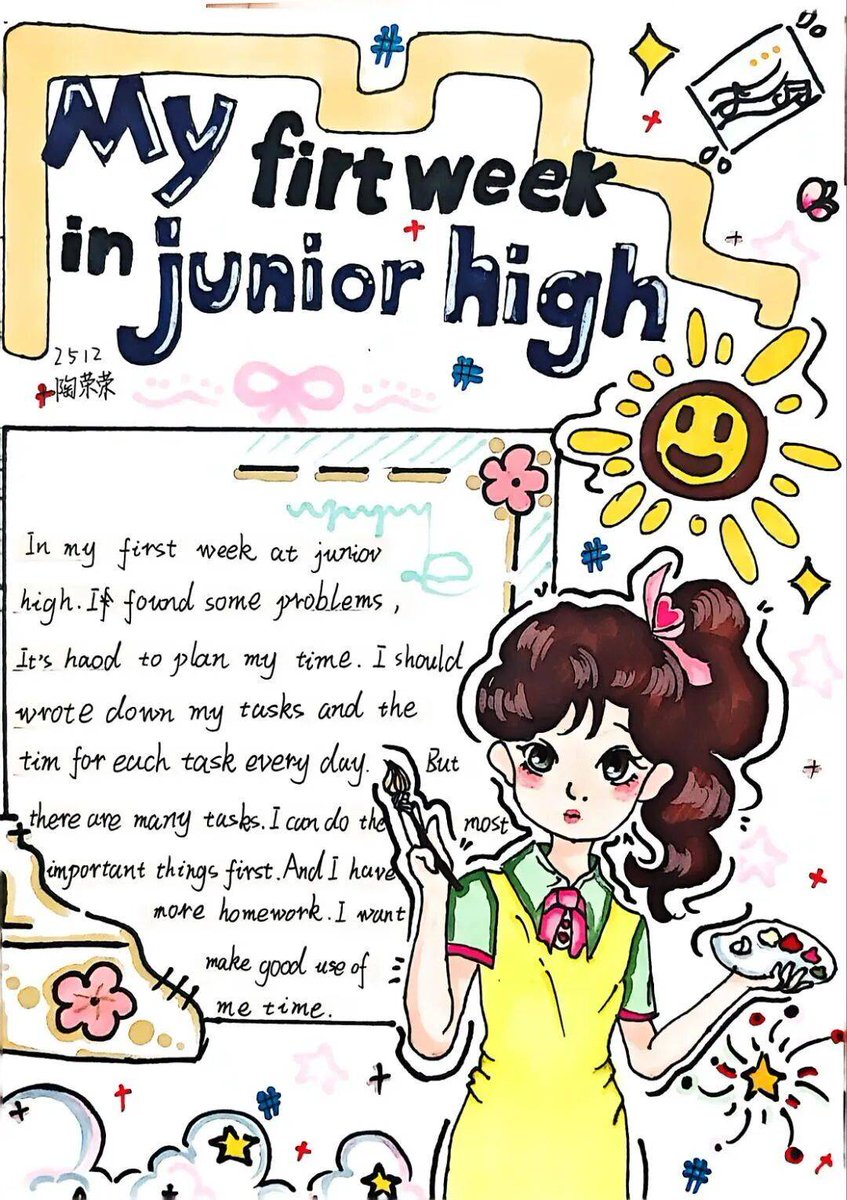 My firt week
in junior high
2512
陶荣荣
In my first week at junior
high. If found some problems,
It's haod to plan my time. I should
wrote down my tasks and the
tim for each task every day. But
there are many tasks. I can do the most
important things first. And I have
more homework. I want
make good use of
me time.